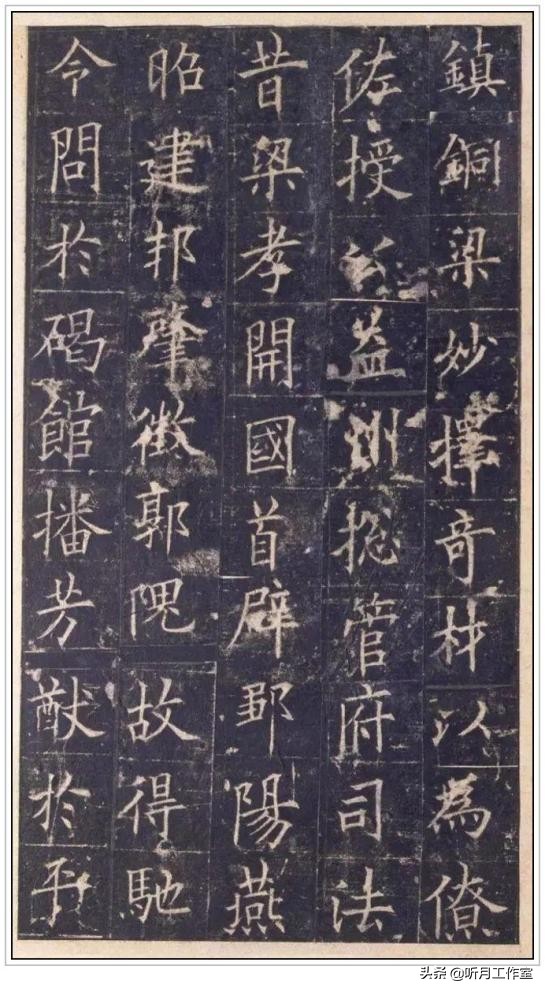 鎮銅梁妙擇奇材以為僚
佐授公益州揔管府司法
昔梁孝開國首辟鄒陽燕
昭建邦肇徵郭隗故得馳
令問於碣館播芳猷於平
头条 @听月工作室